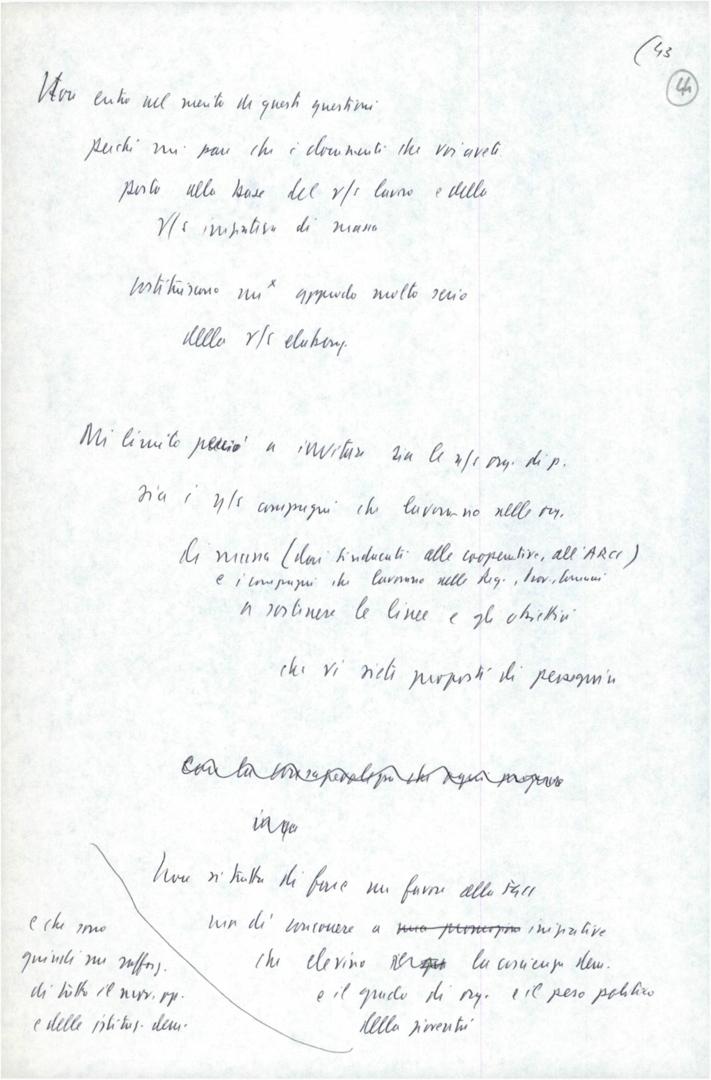 (43
44
Non entro nel merito di questi questioni
perché mi pare che i documenti che voi avete
posto alla base del v/s lavoro e della
v/s iniziativa di massa
costituiscono un x approdo molto serio
della v/s elaboraz.
Mi limito perciò a invitare sia le n/s org. di p.
sia i n/s compagni che lavorano nelle org.
di massa (dai sindacati alle cooperative, all'ARCI)
e i compagni che lavorano nelle Reg., Prov., Comuni
a sostenere le linee e gli obiettivi
che vi siete proposti di perseguire
con la consapevolezza che ogni progresso
in
Non si tratta di fare un favore alla FGCI
ma di concorrere a una iniziative
che elevino la coscienza dem.
e il grado di org. e il peso politico
della gioventù
e che sono
quindi un rafforz.
di tutto il mov. op.
e delle istituz. dem.